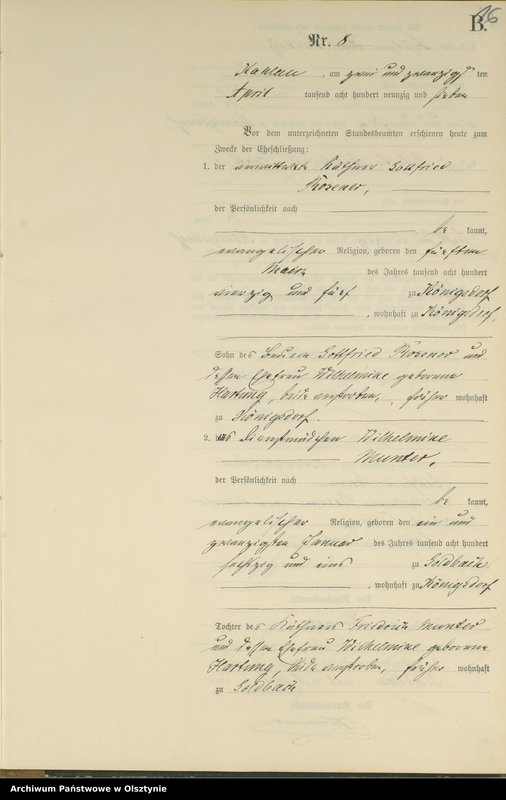 B.
86
Nr. 8
Kahlau, am zwei und zwanzigsten
April tausend acht hundert neunzig und sieben
Vor dem unterzeichneten Standesbeamten erschienen heute zum
Zwecke der Eheschließung:
1. der verwittwete Käthner Gottfried
Rosener,
der Persönlichkeit nach
be kannt,
evangelischer Religion, geboren den fünften
März des Jahres tausend acht hundert
vierzig und fünf zu Königsdorf
, wohnhaft zu Königsdorf,
Sohn des Bauern Gottfried Rosener und
dessen Ehefrau Wilhelmine geborene
Hartung, beide verstorben, früher wohnhaft
zu Königsdorf.
2. das Dienstmädchen Wilhelmine
Munter,
der Persönlichkeit nach
be kannt,
evangelischer Religion, geboren den ein und
zwanzigsten Januar des Jahres tausend acht hundert
sechszig und eins zu Goldbach
, wohnhaft zu Königsdorf
Tochter des Käthners Friedrich Munter
und dessen Ehefrau Wilhelmine geborene
Hartung, beide verstorben, früher wohnhaft
zu Goldbach
Archiwum Państwowe w Olsztynie